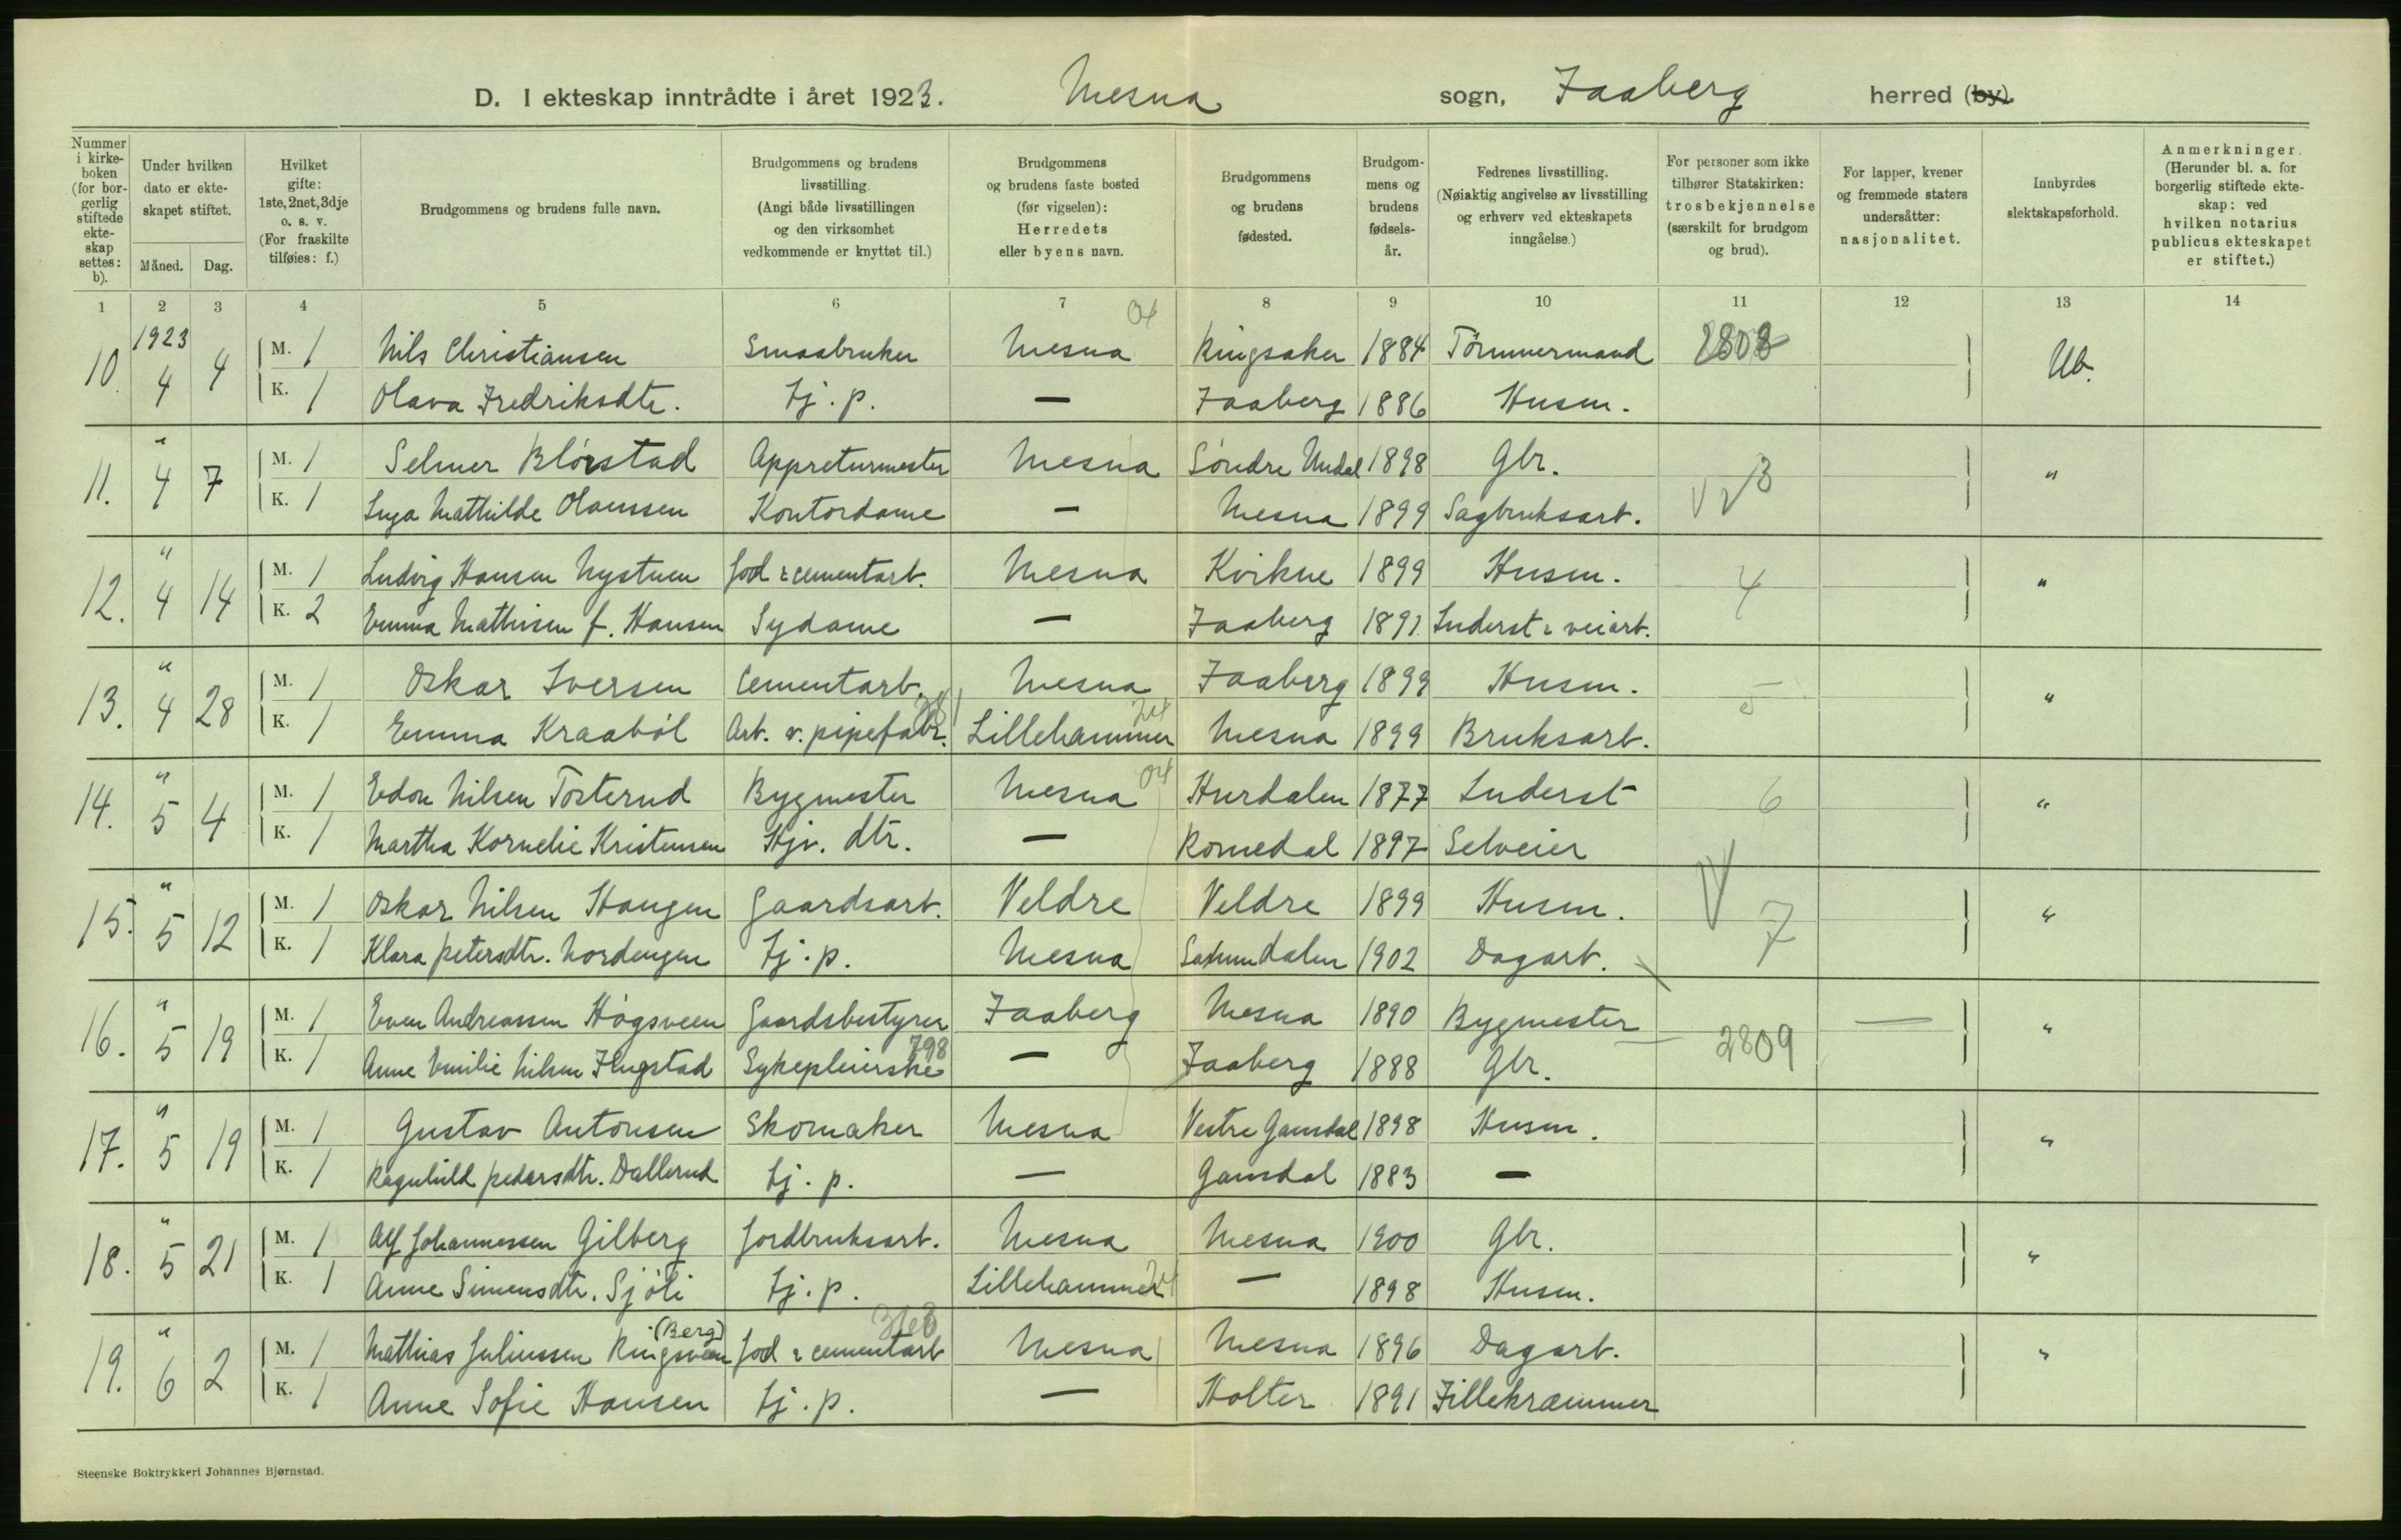 D. I ekteskap inntrådte i året 1923. Mesna sogn, Faaberg herred (by).
Nummer i kirkeboken (for borgerlig stiftede ekteskap settes: b).
Under hvilken dato er ekteskapet stiftet.
Måned. Dag.
Hvilket gifte: 1ste, 2net, 3dje o. s. v. (For fraskilte tilføies: f.)
Brudgommens og brudens fulle navn.
Brudgommens og brudens livsstilling. (Angi både livsstillingen og den virksomhet vedkommende er knyttet til.)
Brudgommens og brudens faste bosted (før vigselen): Herredets eller byens navn.
Brudgommens og brudens fødested.
Brudgommens og brudens fødselsår.
Fedrenes livsstilling. (Nøiaktig angivelse av livsstilling og erhverv ved ekteskapets inngåelse.)
For personer som ikke tilhører Statskirken: trosbekjennelse (særskilt for brudgom og brud).
For lapper, kvener og fremmede staters undersåtter: nasjonalitet.
Innbyrdes slektskapsforhold.
Anmerkninger. (Herunder bl. a. for borgerlig stiftede ekteskap: ved hvilken notarius publicus ekteskapet er stiftet.)
1 2 3 4 5 6 7 8 9 10 11 12 13 14
1923
10. 4 4 M. 1 Nils Christiansen Smaabruker Mesna Ringsaker 1884 Tømmermand 2808 Ub.
K. 1 Olava Fredriksdtr. Tj. p. — Faaberg 1886 Husm.
11. " 4 7 M. 1 Selmer Blörstad Appreturmester Mesna Søndre Undal 1898 Gbr. 3 "
K. 1 Inga Mathilde Olaussen Kontordame — Mesna 1899 Sagbruksarb.
12. " 4 14 M. 1 Ludvig Hansen Nystuen Jod & cementarb. Mesna Kvikne 1899 Husm. 4 "
K. 2 Emma Mathisen f. Hansen Sydame — Faaberg 1891 Inderst & veiarb.
13. " 4 28 M. 1 Oskar Iversen Cementarb. Mesna Faaberg 1899 Husm. 5 "
K. 1 Emma Kraaböl Arb. v. pipefabr. Lillehammer Mesna 1899 Bruksarb.
14. " 5 4 M. 1 Edon Nilsen Tosterud Bygmester Mesna Hurdalen 1877 Inderst 6 "
K. 1 Martha Kornelie Kristensen Hjv. dtr. — Romedal 1897 Selveier
15. " 5 12 M. 1 Oskar Nilsen Haugen Gaardsarb. Veldre Veldre 1899 Husm. 7 "
K. 1 Klara Petersdtr. Nordengen Tj. p. Mesna Saxumdalen 1902 Dagarb.
16. " 5 19 M. 1 Even Andreassen Högsveen Gaardsbestyrer Faaberg Mesna 1890 Bygmester 2809 — "
K. 1 Anne Emilie Nilsen Flugstad Sykepleierske 798 — Faaberg 1888 Gbr.
17. " 5 19 M. 1 Gustav Antonsen Skomaker Mesna Vestre Gausdal 1898 Husm. "
K. 1 Ragnhild Pedersdtr. Dallerud Tj. p. — Gausdal 1883 —
18. " 5 21 M. 1 Alf Johannessen Gilberg Jordbruksarb. Mesna Mesna 1900 Gbr. "
K. 1 Anne Simensdtr. Sjöli Tj. p. Lillehammer — 1898 Husm.
19. " 6 2 M. 1 Mathias Juliussen Ringsveen (Berg) Jod & cementarb Mesna Mesna 1896 Dagarb. "
K. 1 Anne Sofie Hansen Tj. p. — Holter 1891 Fillekræmmer
Steenske Boktrykkeri Johannes Bjørnstad.